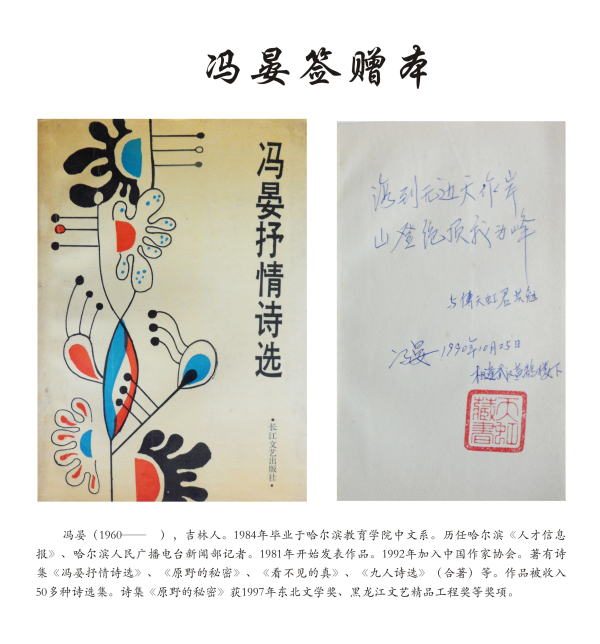 冯晏签赠本
冯晏抒情诗选
·长江文艺出版社·
海到无边天作岸
山登绝顶我为峰
与傅天虹君共勉
冯晏 1990年10月25日
相逢武汉黄鹤楼下
天虹藏书
冯晏（1960——　），吉林人。1984年毕业于哈尔滨教育学院中文系。历任哈尔滨《人才信息
报》、哈尔滨人民广播电台新闻部记者。1981年开始发表作品。1992年加入中国作家协会。著有诗
集《冯晏抒情诗选》、《原野的秘密》、《看不见的真》、《九人诗选》（合著）等。作品被收入
50多种诗选集。诗集《原野的秘密》获1997年东北文学奖、黑龙江文艺精品工程奖等奖项。